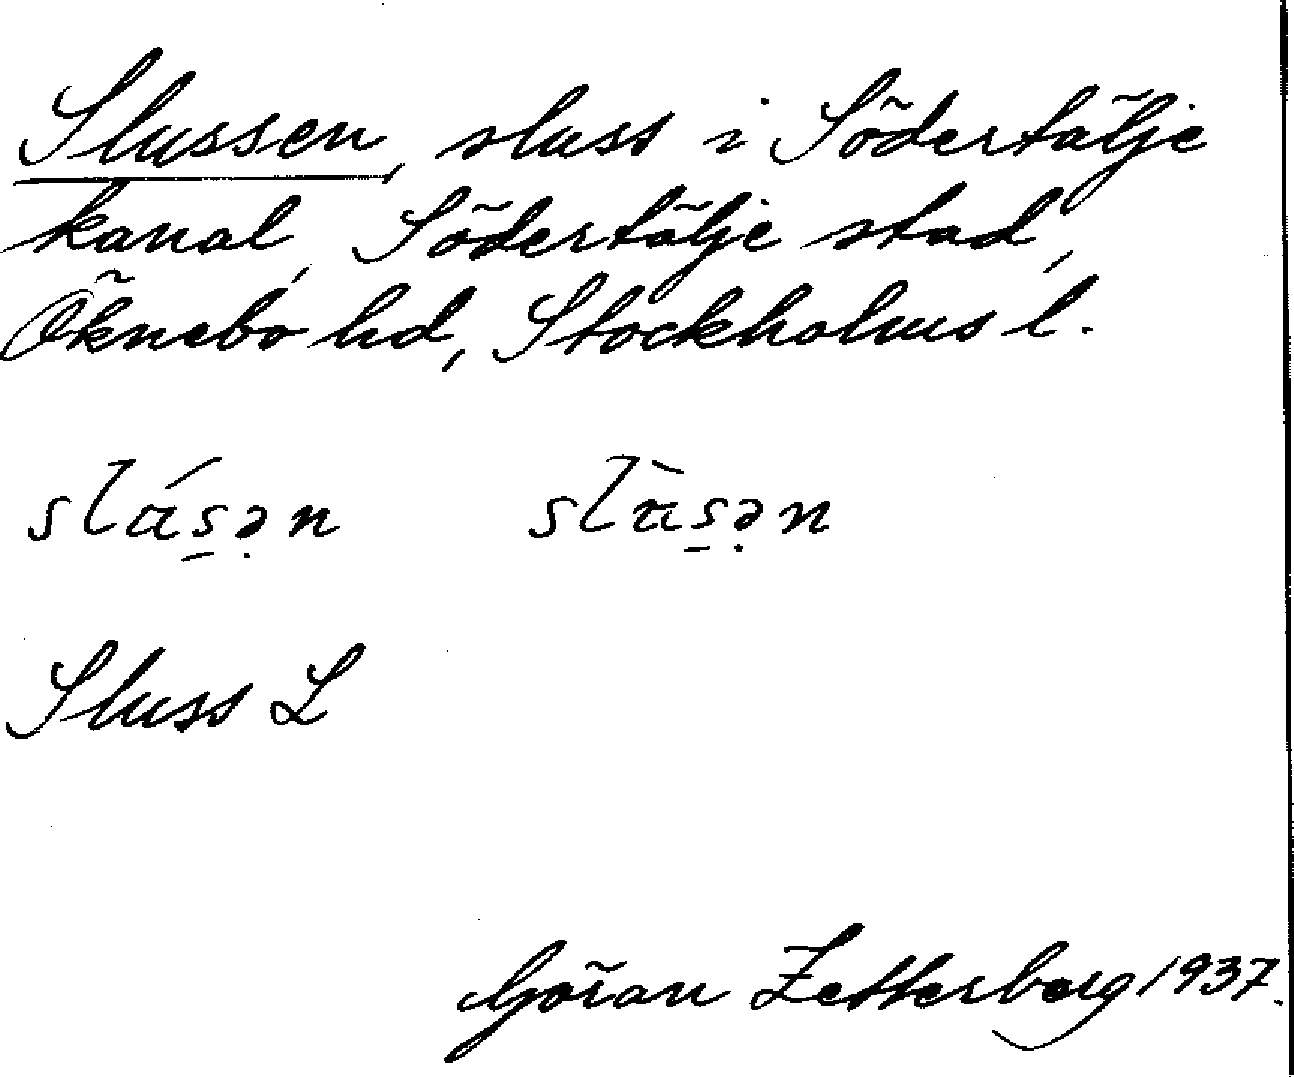 Slussen, sluss i Södertälje
kanal, Södertälje stad,
Öknebo hd, Stockholms l.
slɑ́s̠ə̣n slɑ̀s̠ə̣n
Sluss L
Göran Zetterberg 1937.